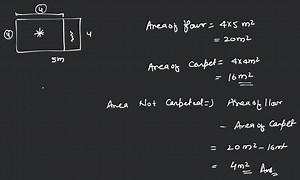 4
4
4
5m
Area of floor = 4x5 m²
= 20m²
Area of Carpet = 4x4m²
= 16m²
Area Not Carpeted => Area of floor
- Area of Carpet
= 20m² - 16m²
= 4m² Ans